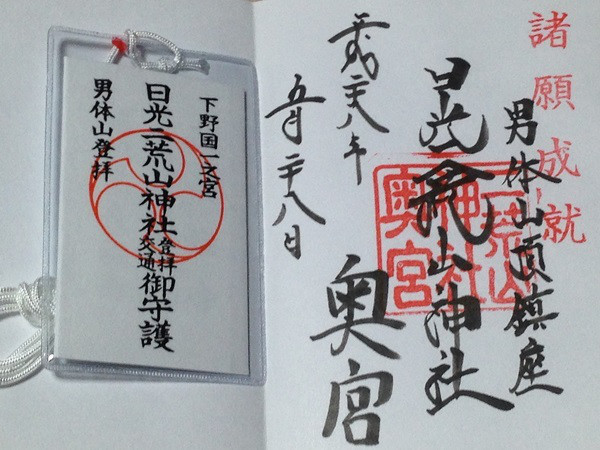 諸願成就
男体山頂鎮座
日光二荒山神社
奥宮
二荒山
神社
奥宮
平成二十八年
五月二十八日
下野国一之宮
日光二荒山神社登拝交通御守護
男体山登拝